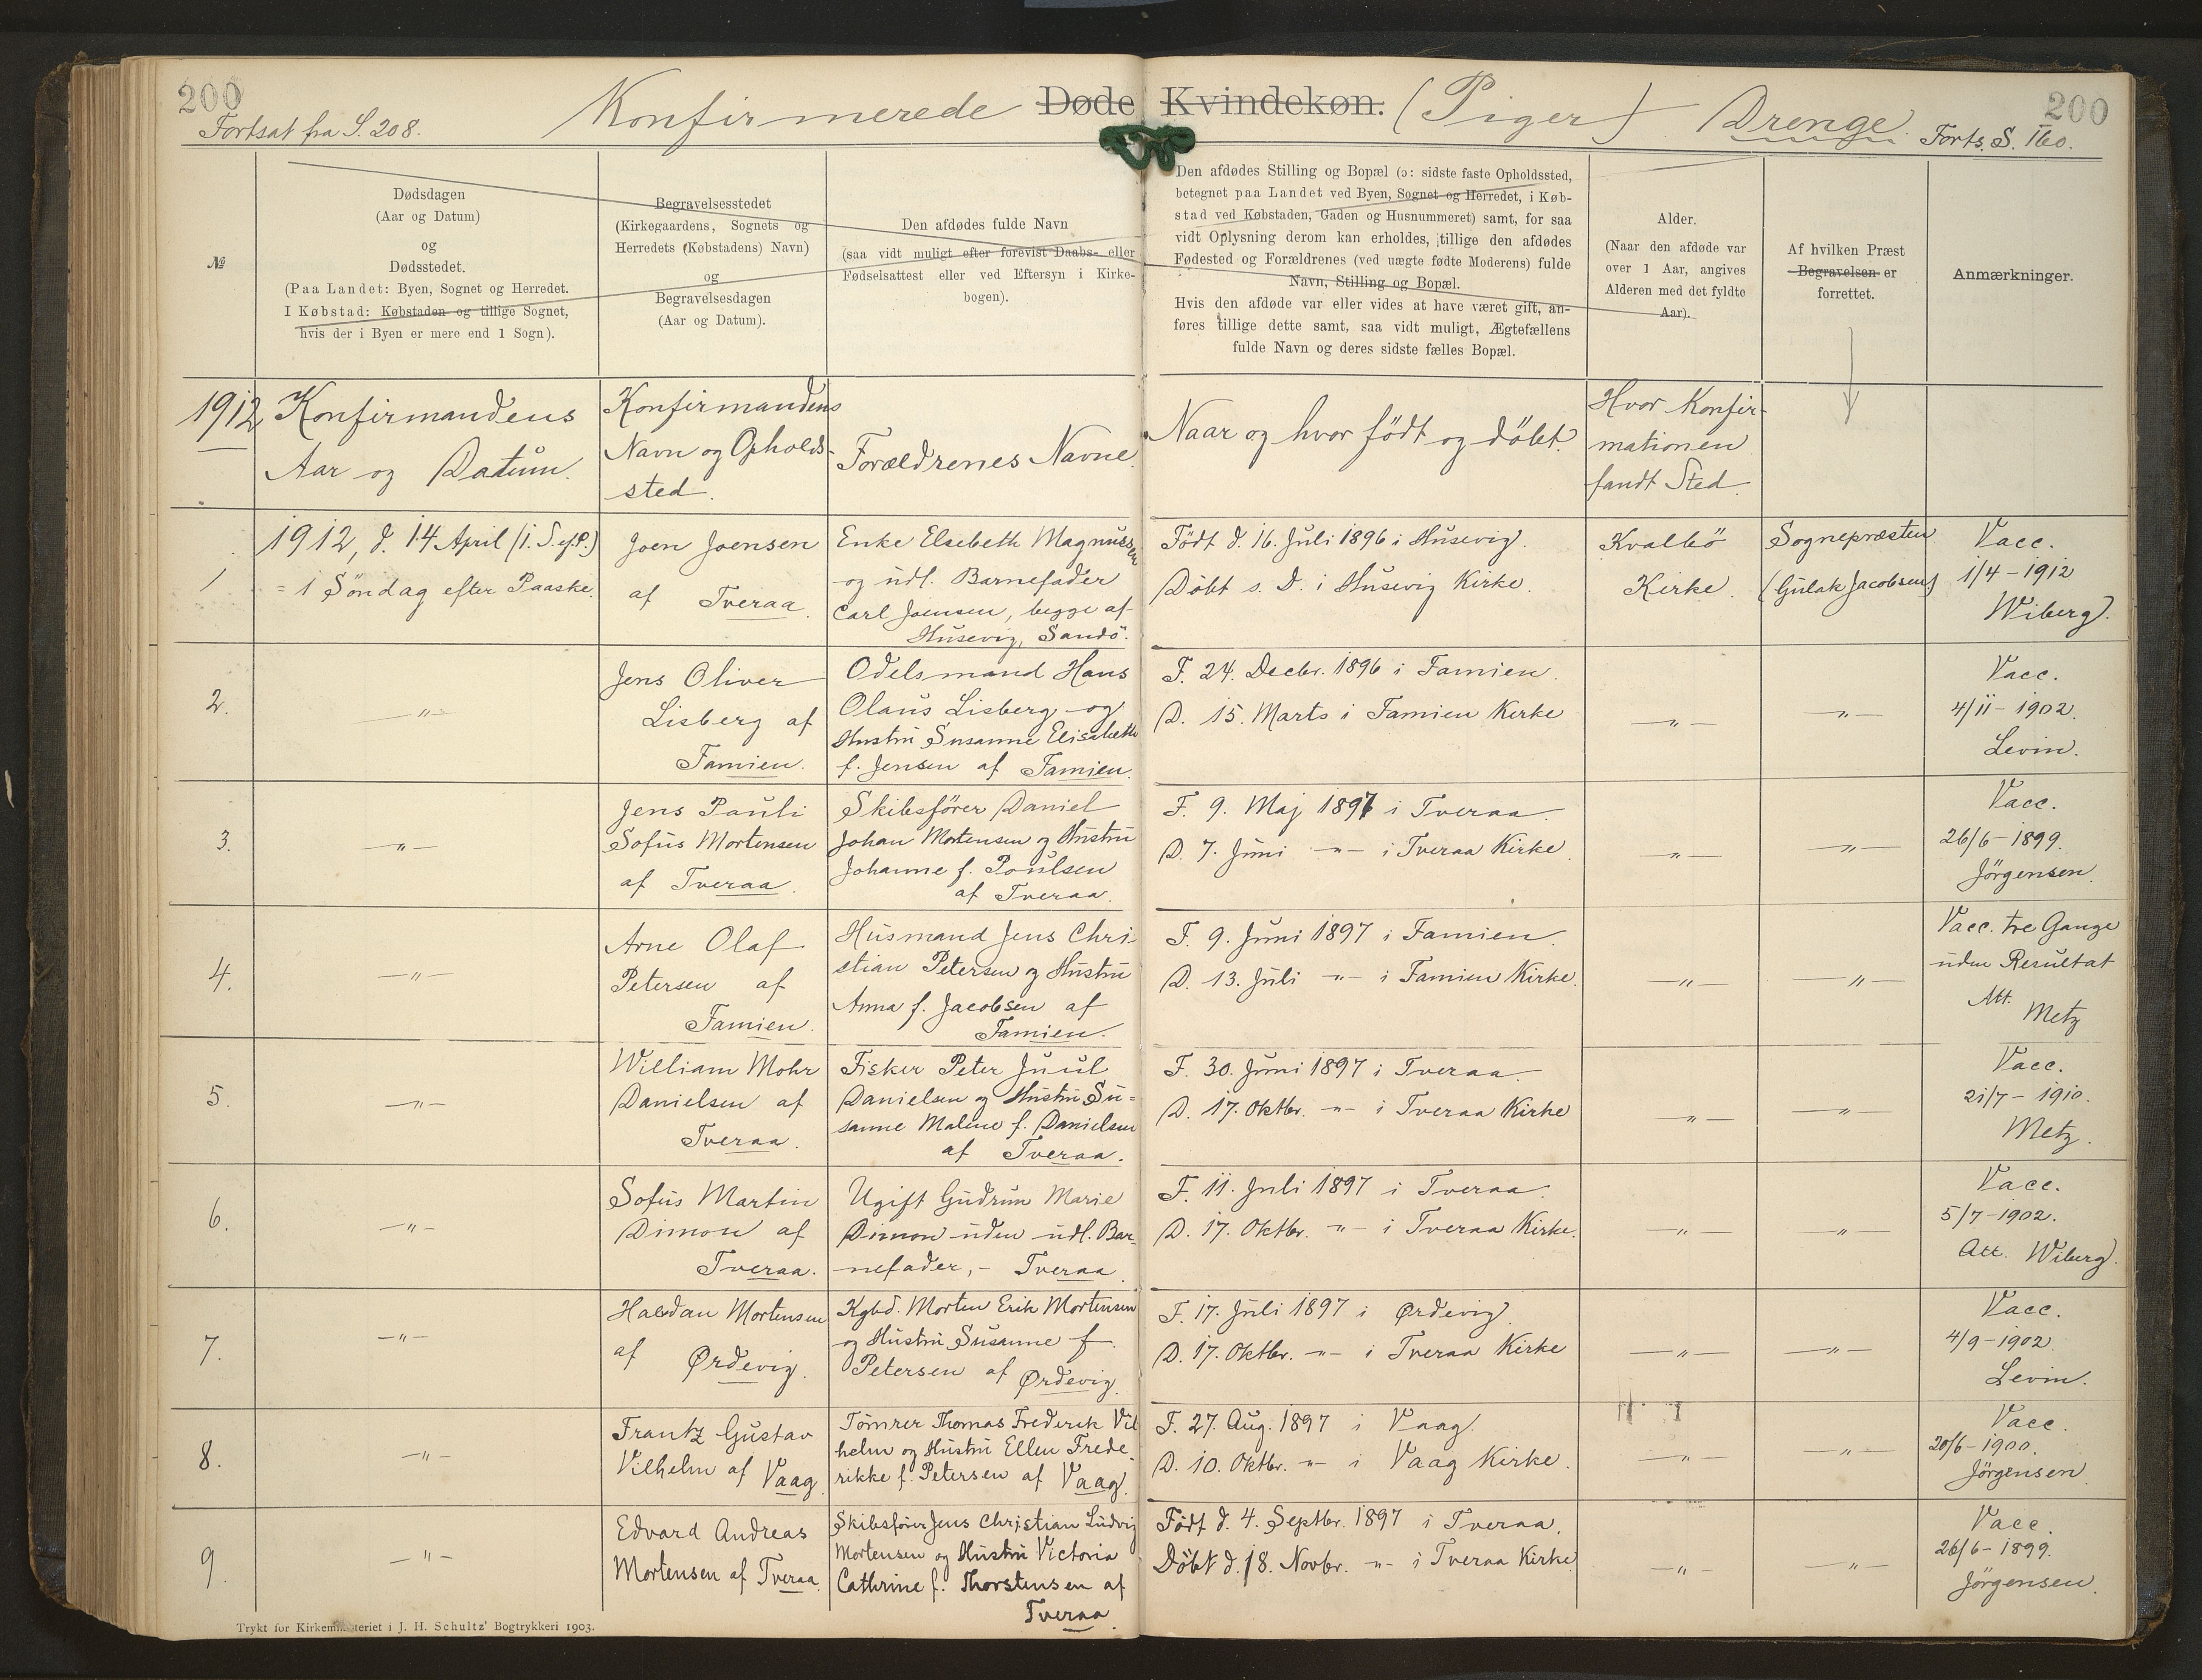 200
Fortsat fra S. 208.
Konfirmerede Døde Kvindekøn. (Piger) Drenge.
200
Forts. S. 160.
№
Dødsdagen
(Aar og Datum)
og
Dødsstedet.
(Paa Landet: Byen, Sognet og Herredet.
I Købstad: Købstaden og tillige Sognet,
hvis der i Byen er mere end 1 Sogn).
Begravelsesstedet
(Kirkegaardens, Sognets og
Herredets (Købstadens) Navn)
og
Begravelsesdagen
(Aar og Datum).
Den afdødes fulde Navn
(saa vidt muligt efter forevist Daabs- eller
Fødselsattest eller ved Eftersyn i Kirke-
bogen).
Den afdødes Stilling og Bopæl (ɔ: sidste faste Opholdssted,
betegnet paa Landet ved Byen, Sognet og Herredet, i Køb-
stad ved Købstaden, Gaden og Husnummeret) samt, for saa
vidt Oplysning derom kan erholdes, tillige den afdødes
Fødested og Forældrenes (ved uægte fødte Moderens) fulde
Navn, Stilling og Bopæl.
Hvis den afdøde var eller vides at have været gift, an-
føres tillige dette samt, saa vidt muligt, Ægtefællens
fulde Navn og deres sidste fælles Bopæl.
Alder.
(Naar den afdøde var
over 1 Aar, angives
Alderen med det fyldte
Aar).
Af hvilken Præst
Begravelsen er
forrettet.
Anmærkninger.
1912
Konfirmandens
Aar og Datum.
Konfirmandens
Navn og Opholds-
sted.
Forældrenes Navne.
Naar og hvor født og döbt.
Hvor Konfir-
mationen
fandt Sted.
1
1912, d. 14 April (1. S. ef. P.)
= 1 Söndag efter Paaske.
Joen Joensen
af Tveraa.
Enke Elsebeth Magnussen
og udl. Barnefader
Carl Joensen, begge af
Husevig, Sandö.
Født d. 16. Juli 1896 i Husevig.
Döbt s. D. i Husevig Kirke.
Kvalbö
Kirke.
Sognepræsten
(Gulak Jacobsen)
Vacc.
1/4 - 1912
Wiberg.
2.
—„—
Jens Oliver
Lisberg af
Famien.
Odelsmand Hans
Olaus Lisberg og
Hustru Susanne Elisabeth
f. Jensen af Famien.
F. 24. Decbr. 1896 i Famien.
D. 15. Marts i Famien Kirke
—„—
—„—
Vacc.
4/11 - 1902.
Levin.
3.
—„—
Jens Pauli
Sofus Mortensen
af Tveraa.
Skibsförer Daniel
Johan Mortensen og Hustru
Johanne f. Poulsen
af Tveraa.
F. 9. Maj 1897 i Tveraa.
D. 7. Juni —„— i Tveraa Kirke.
—„—
—„—
Vacc.
26/6 - 1899.
Jörgensen.
4.
—„—
Arne Olaf
Petersen af
Famien.
Husmand Jens Chri-
stian Petersen og Hustru
Anna f. Jacobsen af
Famien.
F. 9. Juni 1897 i Famien.
D. 13. Juli —„— i Famien Kirke.
—„—
—„—
Vacc. tre Gange
uden Resultat
Att.
Metz
5.
—„—
William Mohr
Danielsen af
Tveraa.
Fisker Peter Juul
Danielsen og Hustru Su=
sanne Malene f. Danielsen
af Tveraa.
F. 30. Juni 1897 i Tveraa.
D. 17. Oktbr. —„— i Tveraa Kirke
—„—
—„—
Vacc.
21/7 - 1910.
Metz.
6.
—„—
Sofus Martin
Dimon af
Tveraa.
Ugift Gudrun Marie
Dimon uden udl. Bar-
nefader, - Tveraa.
F. 11. Juli 1897 i Tveraa.
D. 17. Oktbr. —„— i Tveraa Kirke.
—„—
—„—
Vacc.
5/7 - 1902.
Att. Wiberg.
7.
—„—
Halvdan Mortensen
af Ørdevig.
Kgbd. Morten Erik Mortensen
og Hustru Susanne f.
Petersen af Ørdevig.
F. 17. Juli 1897 i Ørdevig.
D. 17. Oktbr. —„— i Tveraa Kirke
—„—
—„—
Vacc.
4/9 - 1902.
Levin.
8.
—„—
Frantz Gustav
Vilhelm af Vaag.
Tömrer Thomas Frederik Vil
helm og Hustru Ellen Frede-
rikke f. Petersen af Vaag.
F. 27. Aug. 1897 i Vaag.
D. 10. Oktbr. —„— i Vaag Kirke.
—„—
—„—
Vacc.
20/6 - 1900.
Jörgensen.
9.
—„—
Edvard Andreas
Mortensen af Tveraa.
Skibsförer Jens Christian Ludvig
Mortensen og Hustru Victoria
Cathrine f. Thorstensen af
Tveraa.
Født d. 4. Septbr. 1897 i Tveraa.
Döbt d. 18. Novbr. —„— i Tveraa Kirke.
—„—
—„—
Vacc.
26/6 - 1899.
Jörgensen.
Trykt for Kirkeministeriet i J. H. Schultz' Bogtrykkeri 1903.